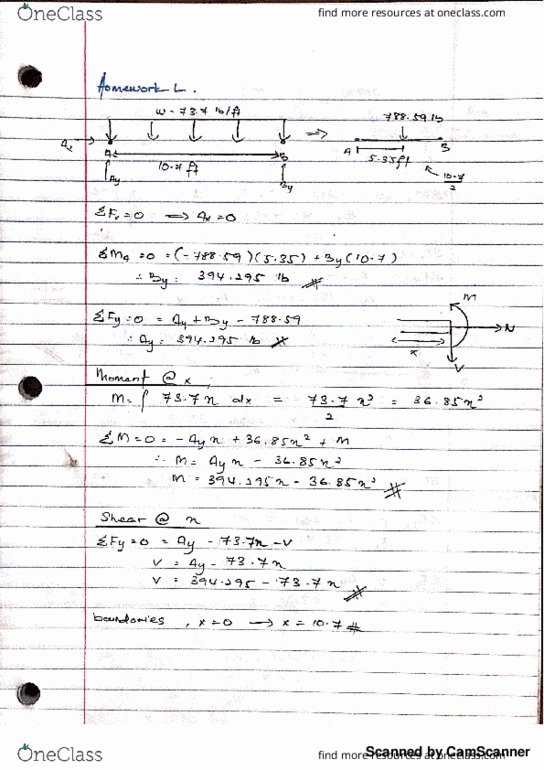 OneClass
find more resources at oneclass.com
Homework L.
w = 73.7 lb/ft
788.59 lb
Ax
A
B
A
B
10.7 ft
5.35ft
10.7
2
Ay
By
ΣFx = 0 → Ax = 0
ΣMA = 0 = (-788.59)(5.35) + By(10.7)
∴ By = 394.295 lb
M
N
V
x
ΣFy = 0 = Ay + By - 788.59
∴ Ay = 394.295 lb
Moment @ x
M = ∫ 73.7 x dx = 73.7 x² / 2 = 36.85x²
ΣM = 0 = -Ay x + 36.85x² + M
∴ M = Ay x - 36.85x²
M = 394.295x - 36.85x²
Shear @ x
ΣFy = 0 = Ay - 73.7x - V
V = Ay - 73.7x
V = 394.295 - 73.7x
boundaries , x=0 → x = 10.7
OneClass
find more resources at oneclass.com
Scanned by CamScanner